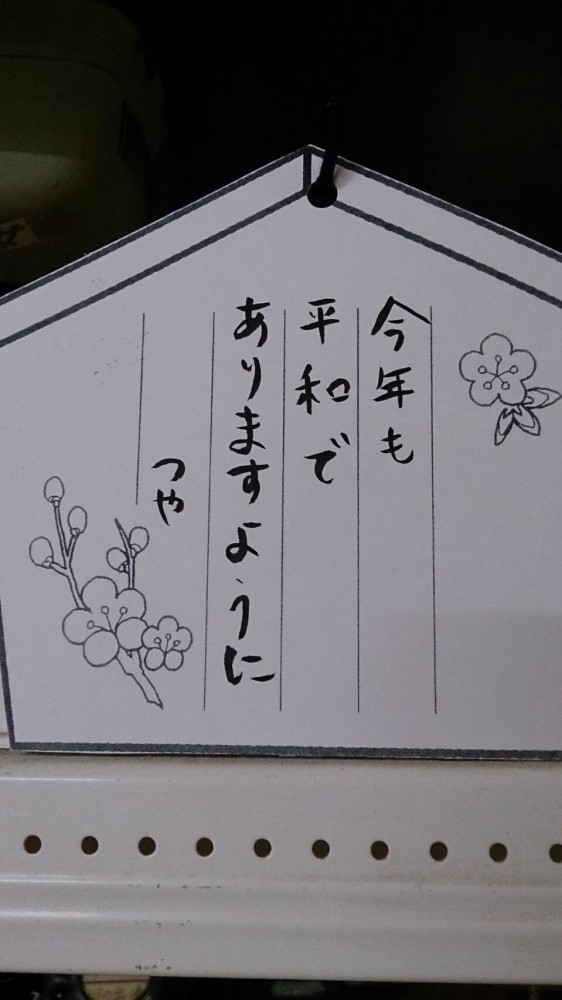 今年も
平和で
ありますように
つや